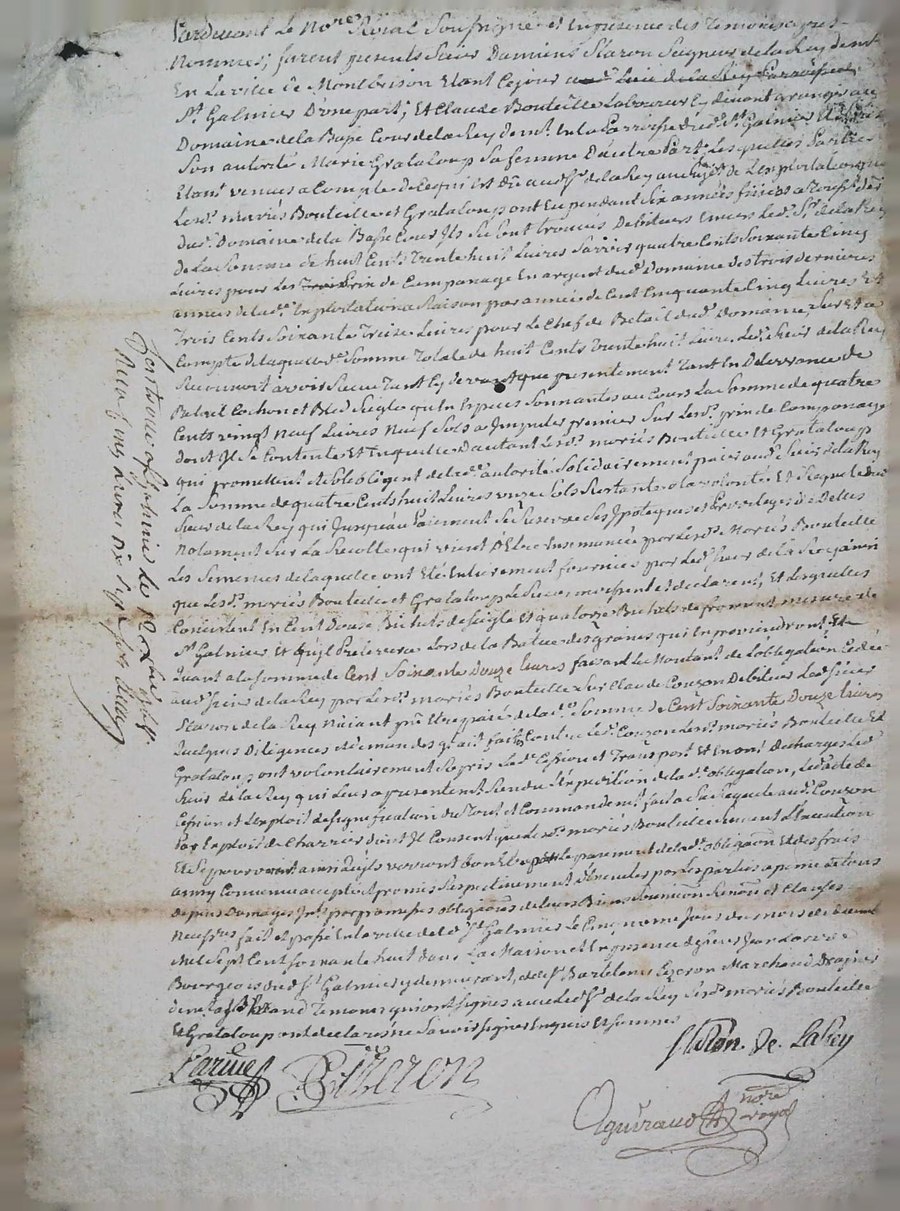 Pardevant Le No.re Roial Soussigné et En presence des Temoins apres
Nommes, furent presents Sieur Damiens Staron Seigneur de la Rey demt
En La ville de Montbrison Etant Cejour au Lieu de la Rey Parroisse de
St. Galmier D'une part, Et Claude Bouteille Laboureur Cy devant granger au
Domaine de la Basse Cour de la Rey demt. En la Parroisse dud. St. Galmier
Son autorité Marie Grataloup Sa femme D'autre part, Lesquelles Parties
Etant venues a Compte de Ce qui est Dû aud. Sr. de la Rey au Sujet de L'exploitation que
Les d. mariés Bouteille et Grataloup ont Eu pendant Six années
dud. Domaine de la Basse Cour Ils Se Sont trouvés Debiteurs Envers Led. Sr. de la Rey
De La Somme de huit Cents Trente huit Livres Savoir quatre Cents Soixante Cinq
Livres pour Les prix de Campanage En argent dud. Domaine des trois dernieres
années de Lad. Exploitation a Raison par année de Cent Cinquante Cinq Livres Et
Trois Cents Soixante Treise Livres pour Le Chef de Betail dud. Domaine, Sur Et a
Compte de laquelle d. Somme Totale de huit Cents Trente huit Livres Led. Sieur de la Rey
Reconnoit avoir Receu Tant Cy devant que presentement Tant En Delivrance de
Betail Cochon et Bled Seigle qu'En Especes Sonnantes au Cours La Somme de quatre
Cents vingt Neuf Livres Neuf Sols a Imputer premier Sur Lesd. prix de Campanage
dont Il Se Contente Et En quitte D'autant Lesd. mariés Bouteille Et Grataloup
qui promettent et S'obligent de lad. autorité Solidairement paier aud. Sieur de la Rey
La Somme de quatre Cents huit Livres onze Sols Restants a la volonté Et Requete dud.
Sieur de la Rey qui Jusqu'au Paiement Se Reserve Ses Ipoteques et Privileges
Notament Sur La Recolte qui vient D'Etre Ensemencée par Lesd. Mariés Bouteille
Les Semences de laquelle ont Eté Entierement fournies par Led. Sieur de la Rey
que Lesd. mariés Bouteille et Grataloup Le Reconnoissent et declarent, Et Lesquelles
Consistent En Cent Douse Bichets de Seigle Et quatorze Bichets de froment mesure de
St. Galmier Et qu'il Prelevera Lors de la Battue des grains qui En proviendront Et
Quant a la Somme de Cent Soixante Douze Livres faisant Le Montant de L'obligation Cedée
aud. Sieur de la Rey par Lesd. mariés Bouteille Sur Claude Couzon Debiteur Led. Sieur
Staron de la Rey N'aiant pû Etre paié de la d. Somme de Cent Soixante Douze Livres
Quelques Diligences et demandes qu'il ait faites Contre Led. Couzon Lesd. mariés Bouteille Et
Grataloup ont volontairement Repris Lad. Cession et Transport Et En ont dechargé Led.
Sieur de la Rey qui Leur a presentement Rendu L'Expedition de la d. obligation, Led. acte de
Cession et L'exploit de Signification du Tout et Commandemt. fait a Sa Requete aud. Couzon
par Exploit de Charrier dont Il Consent que Lesd. mariés Bouteille
Et Se pourvoient ainsi qu'ils verront bon Etre pour le paiement de lad. obligation Et des frais
ainsy Convenu accepté et promis Respectivement Executer par Les parties a peine de tous
depens Domages Intr. par promesses obligations de Leurs Biens Soumissions Renons. et Clauses
Necessres. fait et passé En la ville de St. Galmier Le Cinquieme Jour du mois de
Mil Sept Cent Soixante huit dans La Maison et En presence de Sieur Jean Larive
Bourgeois dud. St. Galmier y demeurant, de Sr. Bartelemi Eyzeron Marchand
Temoins qui ont Signés avec Led. Sr. de la Rey Lesd. mariés Bouteille
Et Grataloup ont declaré ne Savoir Signer Enquis Et Sommés
Staron. De. LaRey
Larive
B Eizeron
Aguiraud
nore
royal